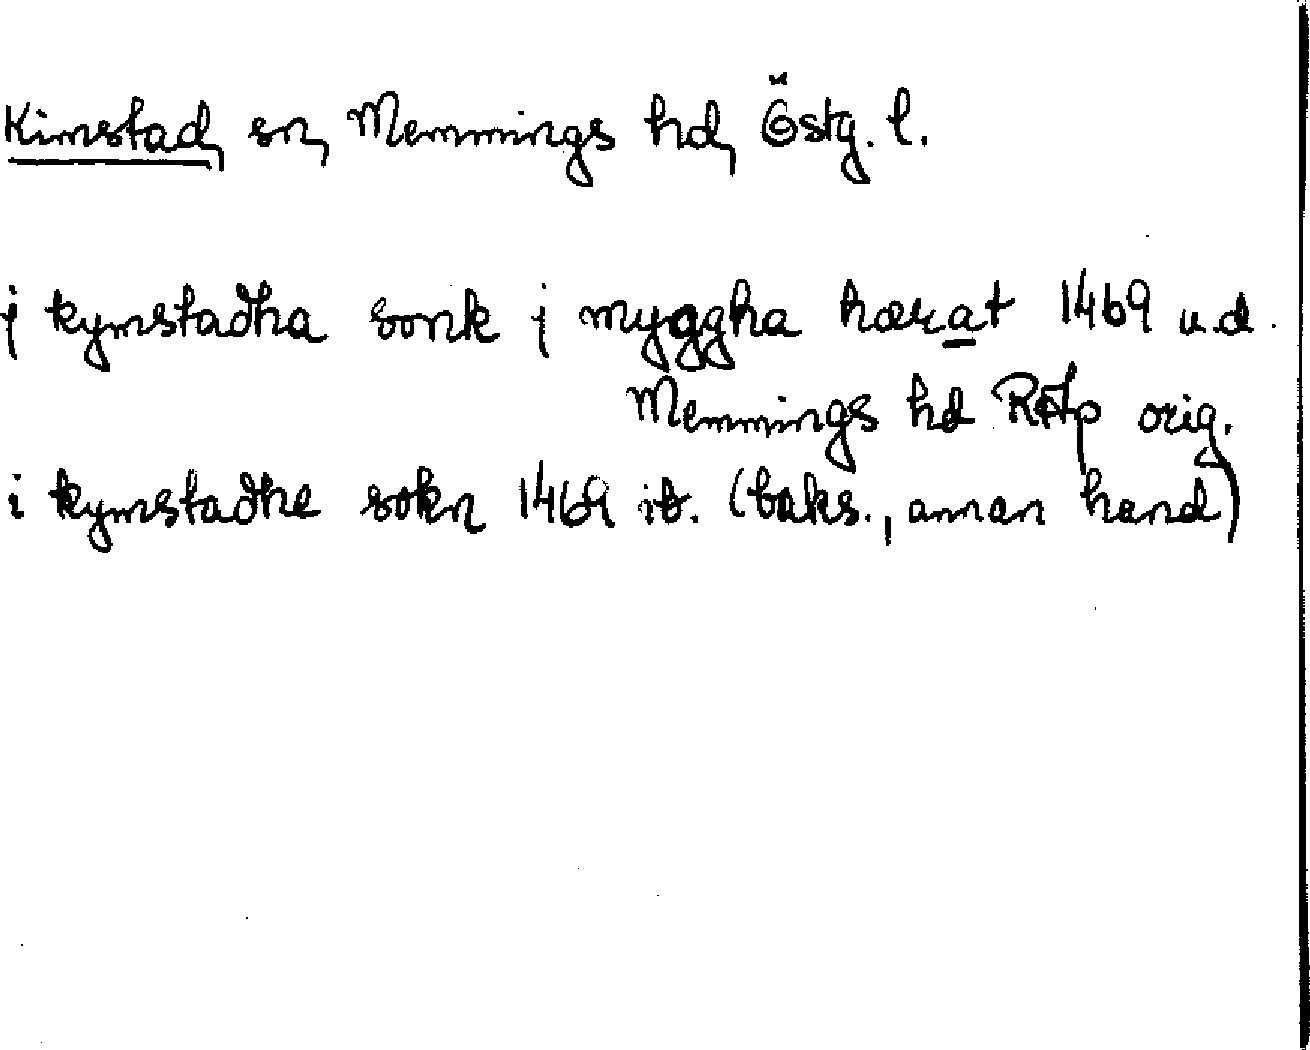 Kimstad, sn, Memmings hd, Östg. l.
j kymstadha sonk j myggha hærat 1469 u.d.
Memmings hd RAp orig.
i kymstadhe sokn 1469 ib. (baks., annan hand)